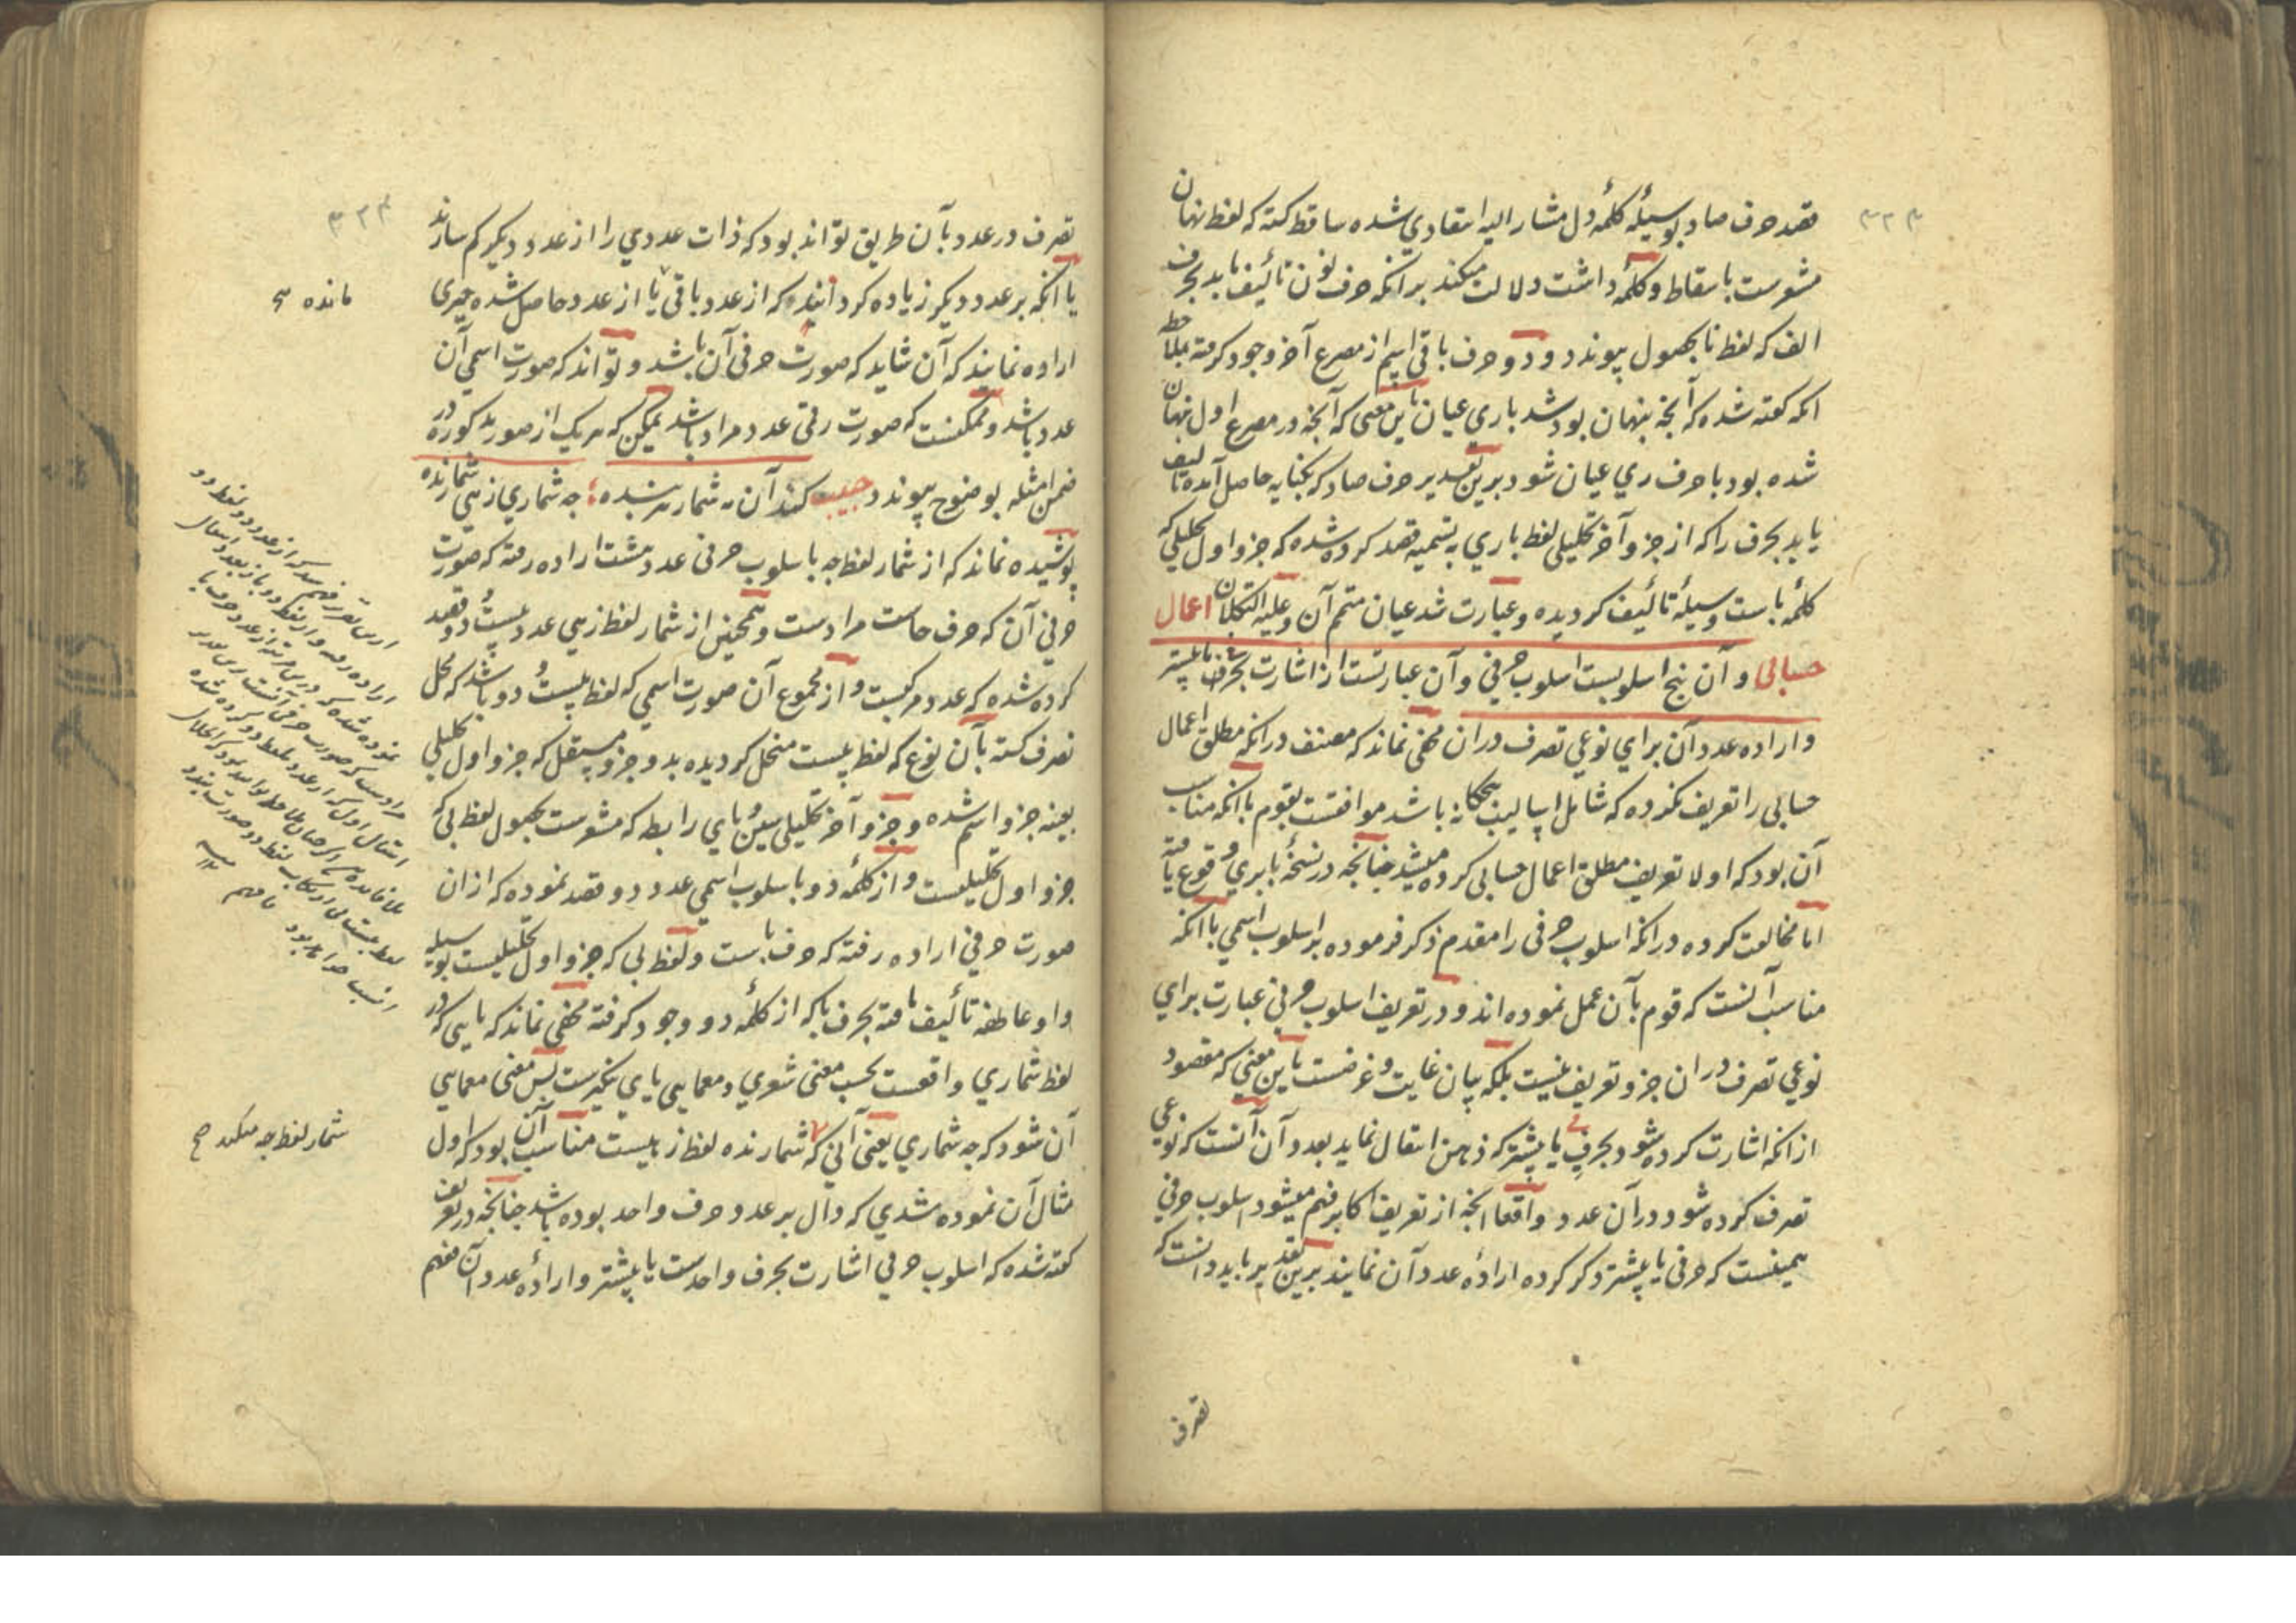 ۳۲۳
قصد حرف صاد بوسیلهٔ کلمهٔ دل مشار الیه انتقادی شده ساقط کشته که لفظ نهان
مشعرست باسقاط و کلمهٔ داشت دلالت میکند برانکه حرف نون تألیف یابد بحرف
الف که لفظ نا بحصول پیوندد و دو حرف باقی اسم از مصرع آخر وجود کرفته بملاحظه
انکه کفته شده که آنچه پنهان بود شد باری عیان باین معنی که آنچه در مصرع اول نهان
شده بود با حرف ری عیان شود برین تقدیر حرف صاد که بکنایه حاصل آمده تألیف
یابد بحرف را که از جزو آخر تحلیلی لفظ باری به تسمیه قصد کرده شده که جزو اول تحلیلی که
کلمهٔ باست وسیلهٔ تألیف کردیده و عبارت شد عیان متمم آن وعلیه التکلان اعمال
حسابی و آن پنج اسلوبست اسلوب حرفی و آن عبارتست از اشارت بحرفی یا بیشتر
و اراده عدد آن برای نوعی تصرف دران مخفی نماند که مصنف درانکه مطلق اعمال
حسابی را تعریف نکرده که شامل اسالیب پنجکانه باشد موافقست بقوم باانکه مناسب
آن بود که اولا تعریف مطلق اعمال حسابی کرده میشد چنانچه در نسخهٔ بابری وقوع یافته
اما مخالفت کرده درانکه اسلوب حرفی را مقدم ذکر فرموده بر اسلوب اسمی باانکه
مناسب آنست که قوم بآن عمل نموده اند و در تعریف اسلوب حرفی عبارت برای
نوعی تصرف دران جزو تعریف نیست بلکه بیان غایت و غرضست باین معنی که مقصود
ازانکه اشارت کرده شود بحرفی یا بیشتر که ذهن انتقال نماید بعدد آن آنست که نوعی
تصرف کرده شود در آن عدد واقعا آنچه از تعریف اکابر فهم میشود اسلوب حرفی
همینست که حرفی یا بیشتر ذکر کرده ارادهٔ عدد آن نمایند برین تقدیر باید دانست که
تصرف
۳۲۴
تصرف در عدد بآن طریق تواند بود که ذات عددی را از عدد دیکر کم سازند
یا انکه بر عدد دیکر زیاده کردانیده که از عدد باقی یا از عدد حاصل شده چیزی
مانده صح
اراده نمایند که آن شاید که صورت حرفی آن باشد و تواند که صورت اسمی آن
عدد باشد و ممکنست که صورت رقمی عدد مراد باشد ممکن که هر یک از صور مذکوره در
ضمن امثله بوضوح پیوندد حبیب کند آن مه شمار هر بنده ؛ چه شماری زهی شمارنده
پوشیده نماند که از شمار لفظ چه باسلوب حرفی عدد هشت اراده رفته که صورت
حرفی آن که حرف حاست مرادست و همچنین از شمار لفظ زهی عدد بیست و دو قصد
کرده شده که عدد مرکبست و از مجموع آن صورت اسمی که لفظ بیست و دو باشد که محل
تصرف کشته بآن نوع که لفظ بیست منحل کردیده بدو جزو مستقل که جزو اول تحلیلی
بعینه جزو اسم شده و جزو آخر تحلیلی سین و تای رابطه که مشعرست بحصول لفظ بی که
جزو اول تحلیلیست و از کلمهٔ دو باسلوب اسمی عدد دو قصد نموده که ازان
صورت حرفی اراده رفته که حرف باست و لفظ بی که جزو اول تحلیلیست بوسیله
واو عاطفه تألیف یافته بحرف با که از کلمهٔ دو وجود کرفته مخفی نماند که یایی که در
لفظ شماری واقعست بحسب معنی شعری و معمایی یای تنکیرست پس معنی معمایی
آن شود که چه شماری یعنی آنی که شمارنده لفظ زهیست مناسب آن بود که اول
شمار لفظ چه میکند صح
مثال آن نموده شدی که دال بر عدد حرف واحد بوده باشد چنانچه در تعریف
کفته شده که اسلوب حرفی اشارت بحرف واحدست یا بیشتر و ارادهٔ عدد آن فهم